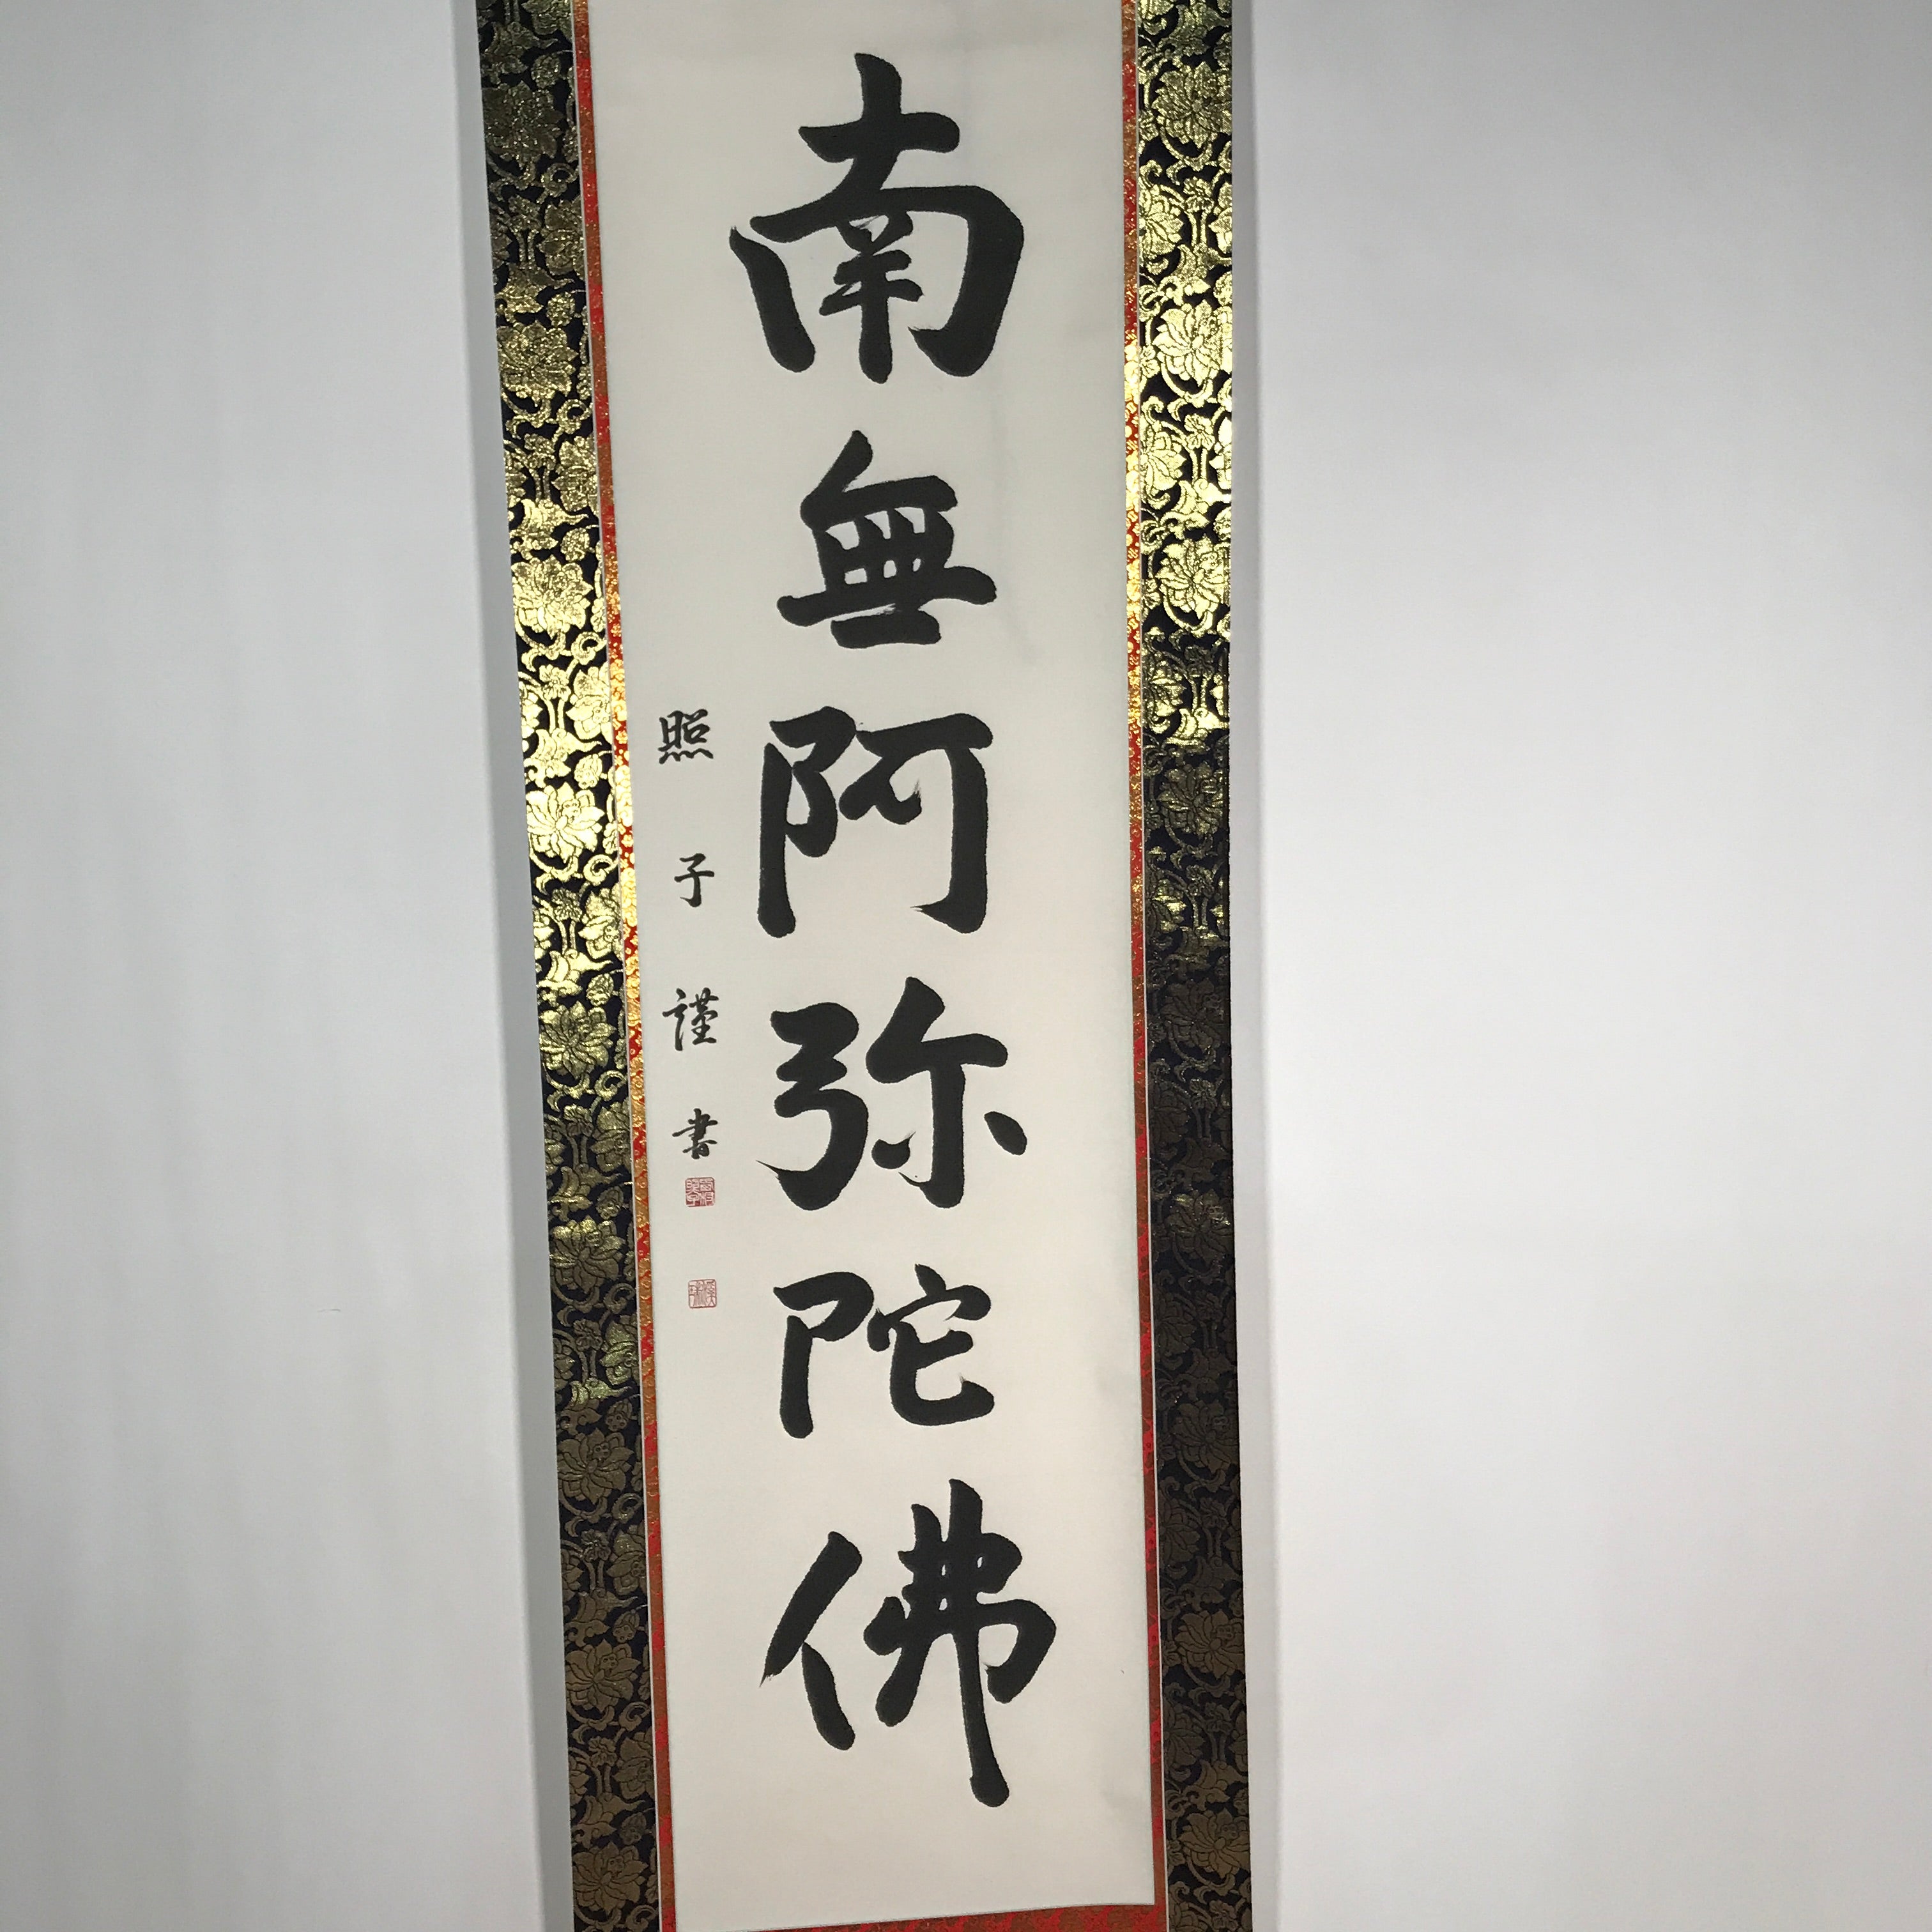 南無阿弥陀佛
照子謹書